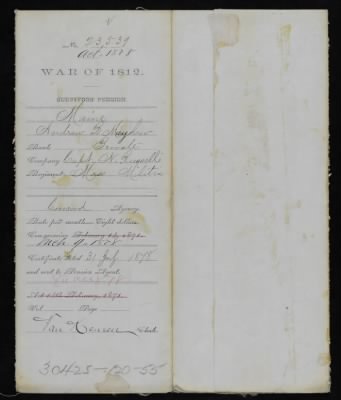 No. 23,539
Act 1878
WAR OF 1812.
SURVIVOR'S PENSION
Maine
Andrew
Rank Private
Company Capt. N.
Regiment Mass Militia
Concord Agency
Rate per month, Eight dollars
Commencing February 14, 1871.
Mch 9. 1878
Certificate dated 31 July 1878
and sent to Pension Agent.
Act 14th February, 1871.
Vol. Page
Clerk.
30425-120-55